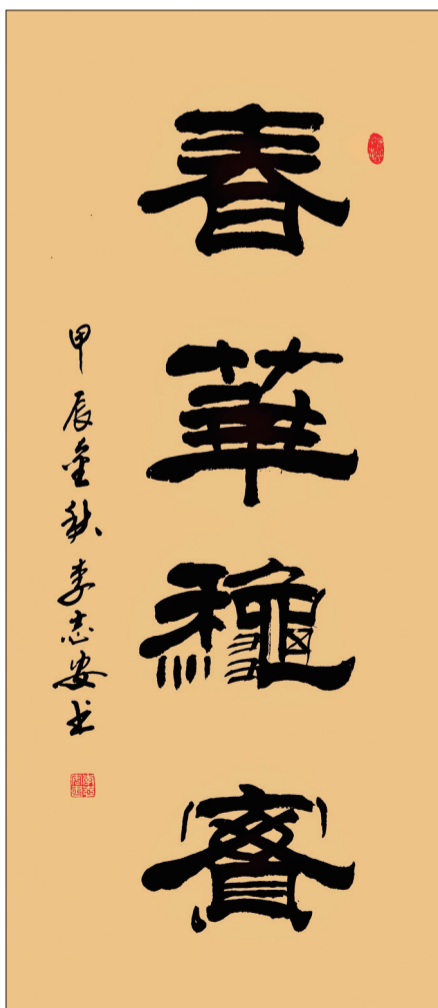 春華龝實
甲辰金秋李志安书